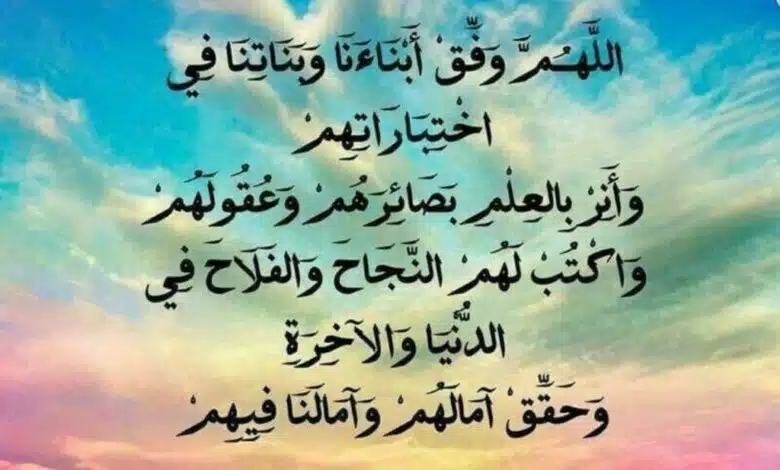 اللَّهُمَّ وَفِّقْ أَبْنَاءَنَا وَبَنَاتِنَا فِي
اخْتِبَارَاتِهِمْ
وَأَنِرْ بِالعِلْمِ بَصَائِرَهُمْ وَعُقُولَهُمْ
وَاكْتُبْ لَهُمْ النَّجَاحَ وَالفَلَاحَ فِي
الدُّنْيَا وَالآخِرَةِ
وَحَقِّقْ آمَالَهُمْ وَآمَالَنَا فِيهِمْ